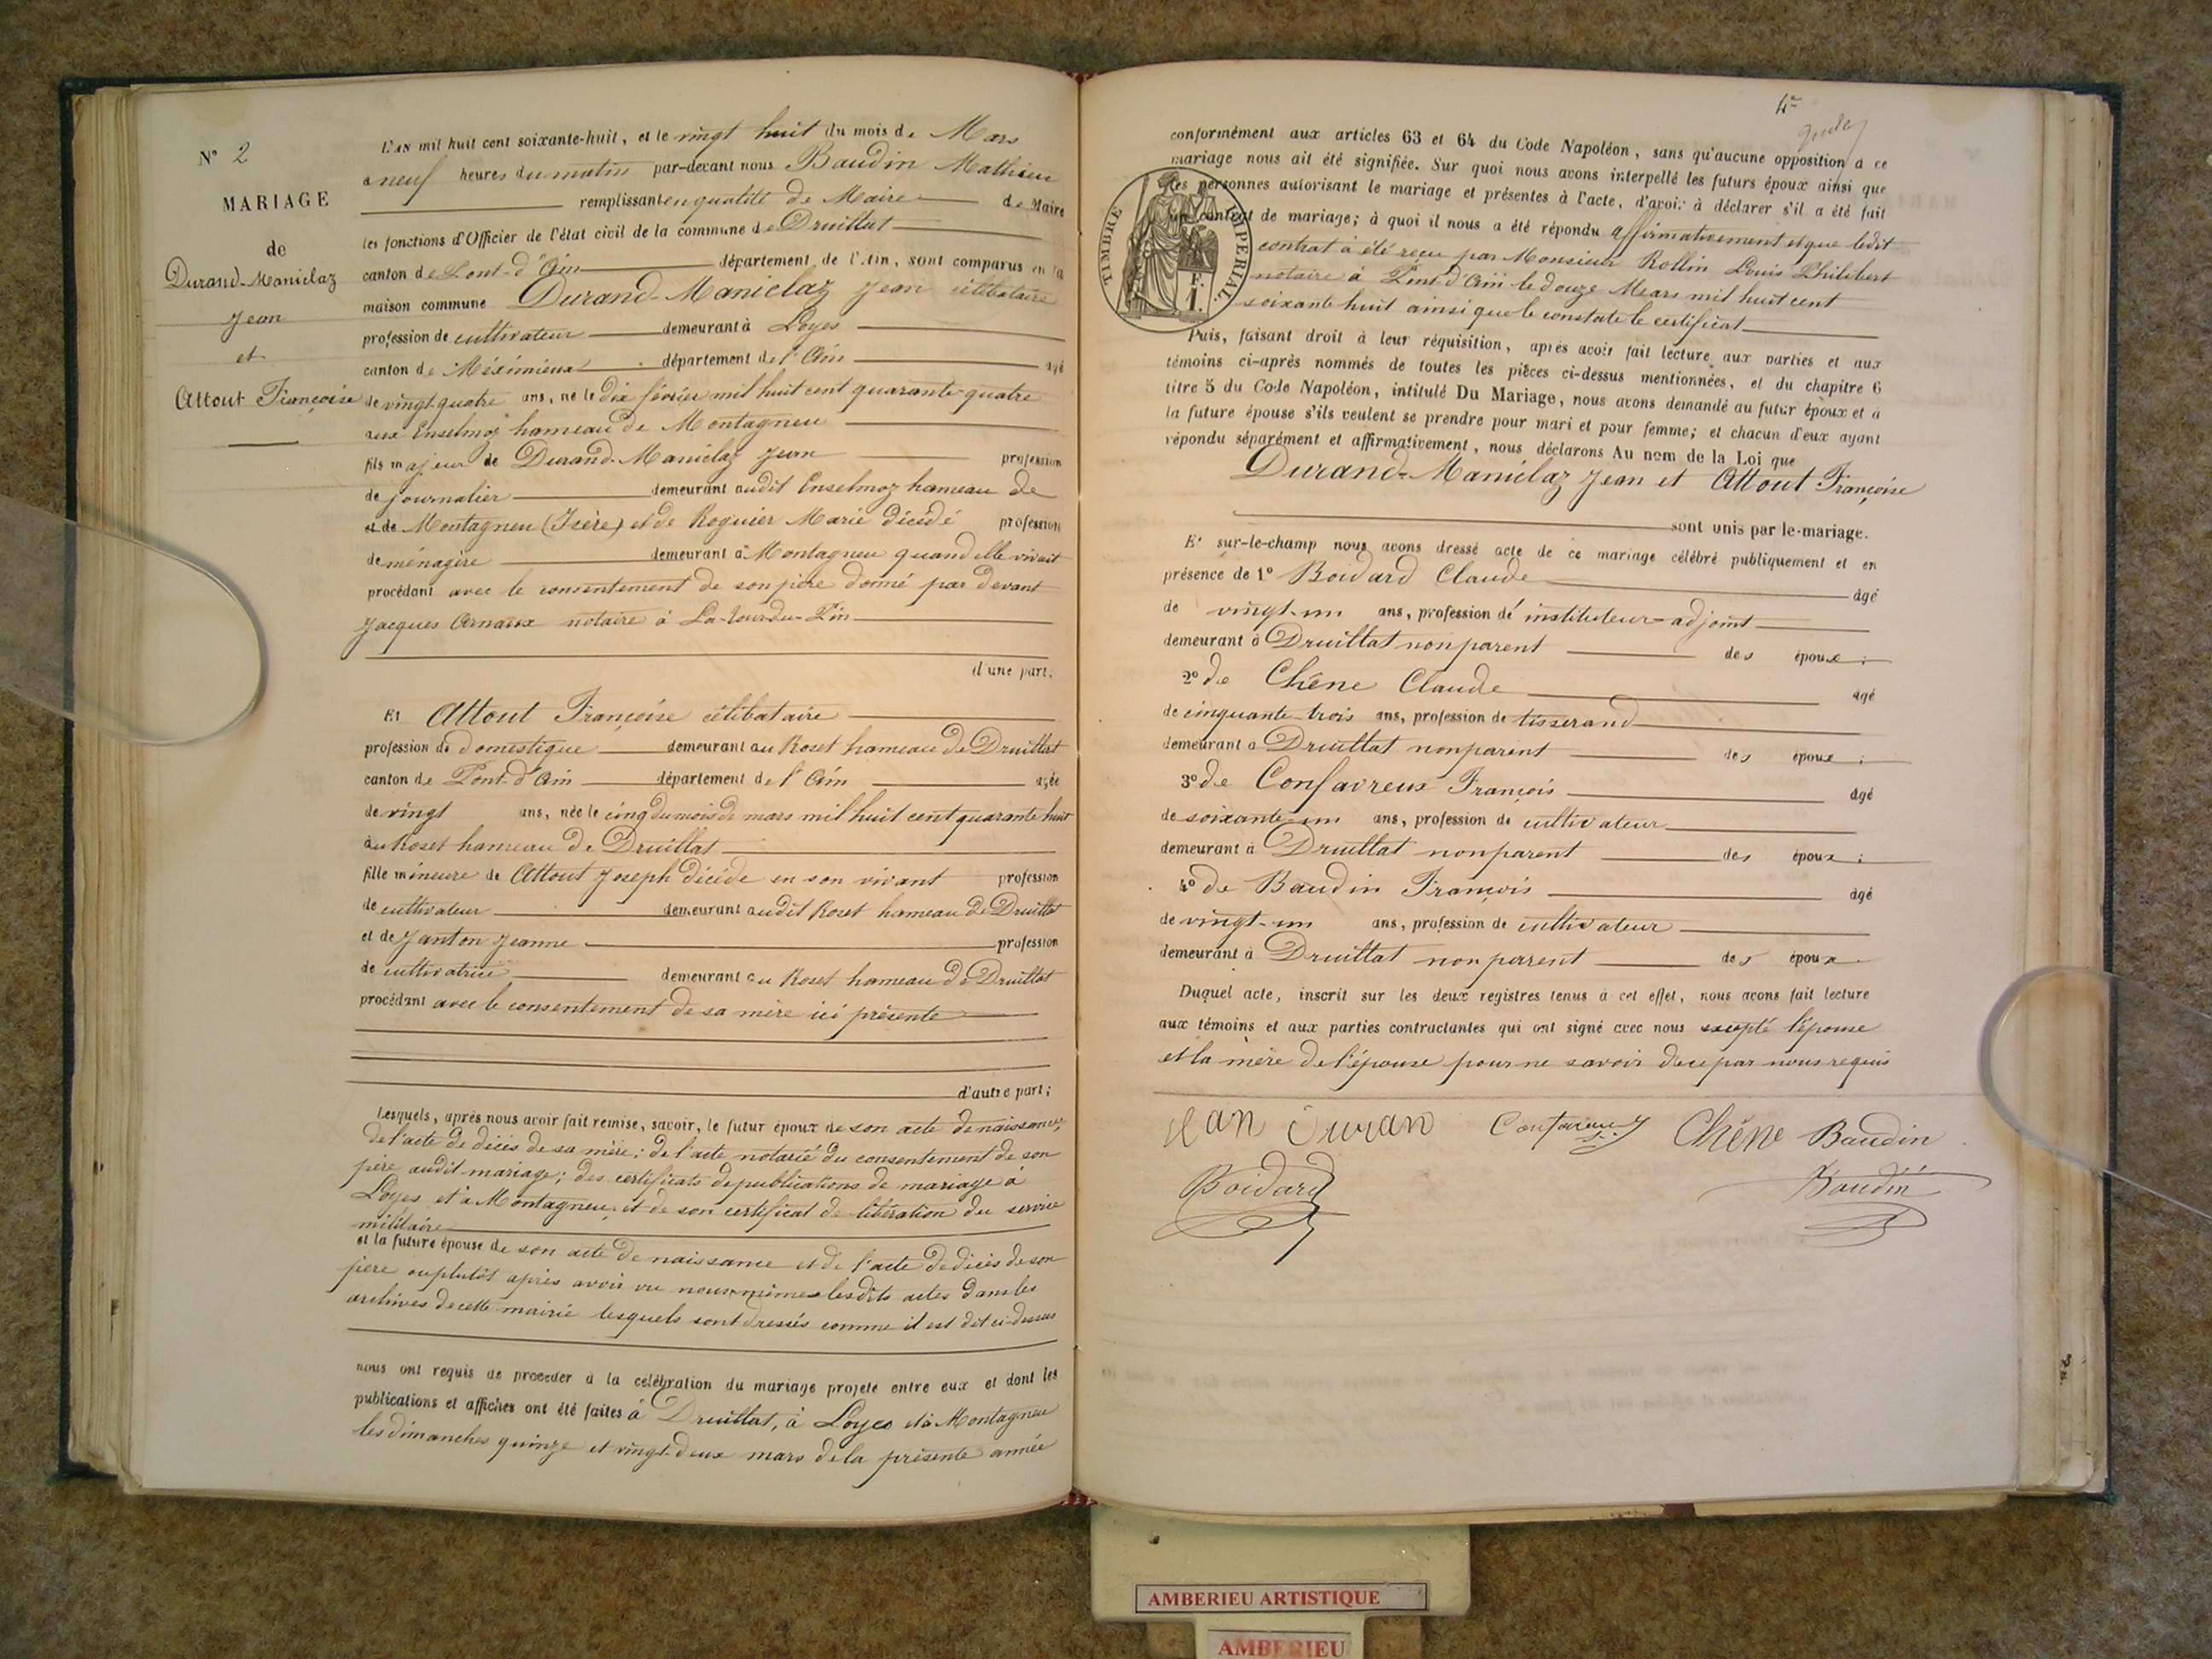 N° 2
MARIAGE
de
Durand-Maniclaz
Jean
et
Attout Françoise
L'AN mil huit cent soixante-huit, et le vingt huit du mois de Mars
a neuf heures du matin par-devant nous Baudin Mathieu
remplissant en qualité de Maire de Maire
les fonctions d'Officier de l'état civil de la commune de Druillat
canton de Pont-d'Ain département de l'Ain, sont comparus en la
maison commune Durand-Maniclaz Jean célibataire
profession de cultivateur demeurant à Loyes
canton de Méximieux département de l'Ain agé
de vingt-quatre ans, né le dix février mil huit cent quarante-quatre
aux Enselmoz hameau de Montagneu
fils majeur de Durand-Maniclaz Jean profession
de journalier demeurant audit Enselmoz hameau de
et de Montagneu (Isère) et de Roguier Marie décédé profession
de ménagère demeurant à Montagneu quand elle vivait
procédant avec le consentement de son père donné par devant
Jacques Arnaux notaire à La-tour-du-Pin
d'une part.
Et Attout Françoise célibataire
profession de domestique demeurant au Roset hameau de Druillat
canton de Pont-d'Ain département de l'Ain agée
de vingt ans, née le cinq du mois de mars mil huit cent quarante huit
au Roset hameau de Druillat
fille mineure de Attout Joseph décédé en son vivant profession
de cultivateur demeurant audit Roset hameau de Druillat
et de Janton Jeanne profession
de cultivatrice demeurant au Roset hameau de Druillat
procédant avec le consentement de sa mère ici présente
d'autre part;
Lesquels, après nous avoir fait remise, savoir, le futur époux de son acte de naissance,
de l'acte de décès de sa mère; de l'acte notarié du consentement de son
père audit mariage; des certificats de publications de mariage à
Loyes et à Montagneu, et de son certificat de libération du service
militaire
et la future épouse de son acte de naissance et de l'acte de décès de son
père ou plutôt après avoir vu nous-mêmes lesdits actes dans les
archives de cette mairie lesquels sont dressés comme il est dit ci-dessus
nous ont requis de procéder à la célébration du mariage projeté entre eux et dont les
publications et affiches ont été faites à Druillat, à Loyes et à Montagneu
les dimanches quinze et vingt-deux mars de la présente année
4e
conformément aux articles 63 et 64 du Code Napoléon, sans qu'aucune opposition à ce
mariage nous ait été signifiée. Sur quoi nous avons interpellé les futurs époux ainsi que
les personnes autorisant le mariage et présentes à l'acte, d'avoir à déclarer s'il a été fait
un contrat de mariage; à quoi il nous a été répondu affirmativement et que ledit
contrat à été reçu par Monsieur Rollin Louis Philibert
notaire à Pont-d'Ain le douze Mars mil huit cent
soixante huit ainsi que le constate le certificat
TIMBRE IMPERIAL
1 F.
Puis, faisant droit à leur réquisition, après avoir fait lecture aux parties et aux
témoins ci-après nommés de toutes les pièces ci-dessus mentionnées, et du chapitre 6
titre 5 du Code Napoléon, intitulé Du Mariage, nous avons demandé au futur époux et à
la future épouse s'ils veulent se prendre pour mari et pour femme; et chacun d'eux ayant
répondu séparément et affirmativement, nous déclarons Au nom de la Loi que
Durand-Maniclaz Jean et Attout Françoise
sont unis par le mariage.
Et sur-le-champ nous avons dressé acte de ce mariage célébré publiquement et en
présence de 1° Boidard Claude âgé
de vingt-un ans, profession de instituteur-adjoint
demeurant à Druillat non parent des époux;
2° de Chêne Claude agé
de cinquante-trois ans, profession de tisserand
demeurant a Druillat non parent des époux;
3° de Confavreux François âgé
de soixante-un ans, profession de cultivateur
demeurant à Druillat non parent des époux;
4° de Baudin François âgé
de vingt-un ans, profession de cultivateur
demeurant à Druillat non parent des époux
Duquel acte, inscrit sur les deux registres tenus à cet effet, nous avons fait lecture
aux témoins et aux parties contractantes qui ont signé avec nous excepté l'épouse
et la mère de l'épouse pour ne savoir de ce par nous requis
Jean Duran Confavreux Chêne Baudin
Boidard Baudin
AMBERIEU ARTISTIQUE
AMBERIEU